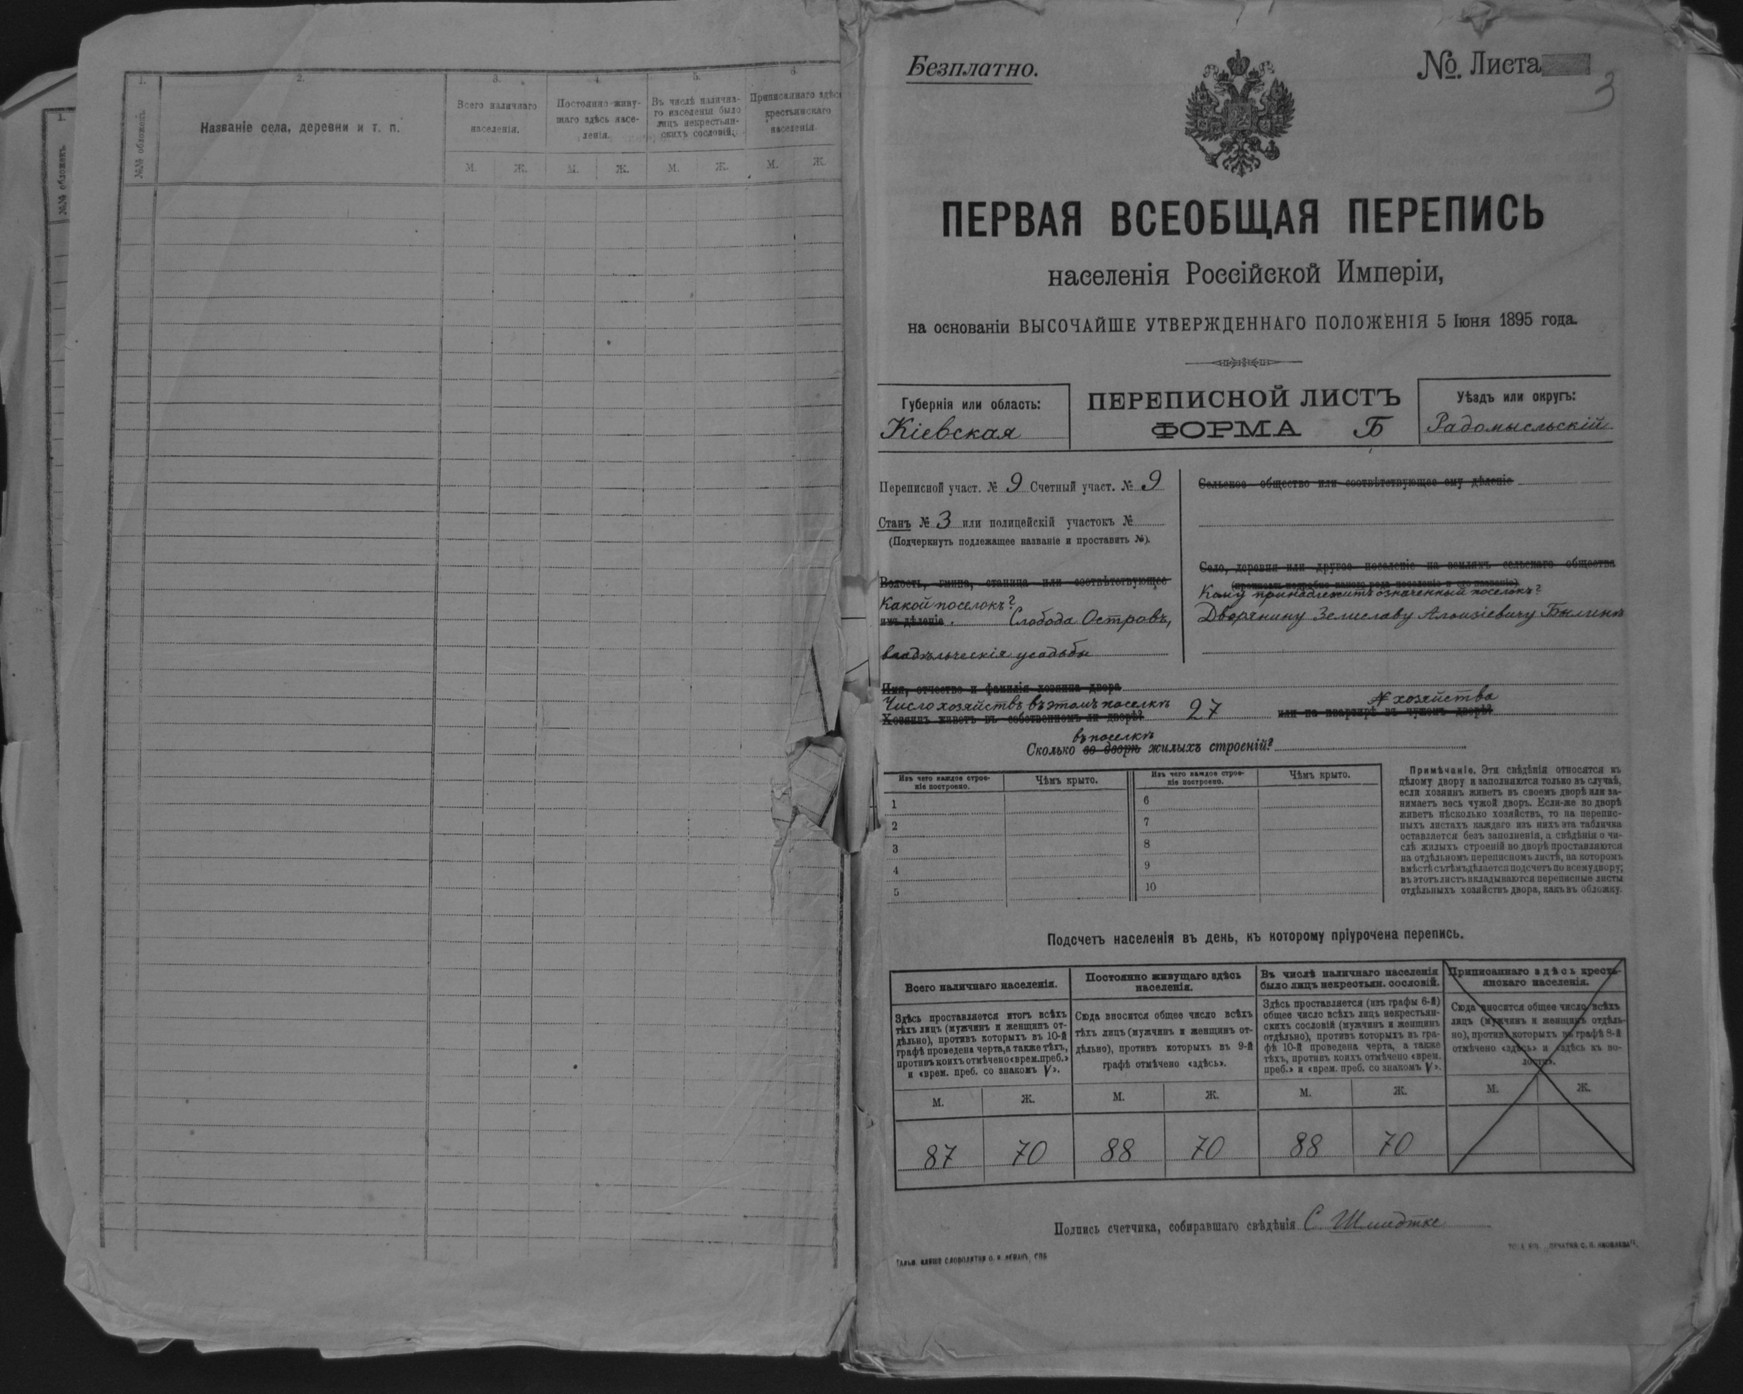 1.
№№ обложекъ
1.
2.
3.
4.
5.
6.
№№ обложекъ
Названіе села, деревни и т. п.
Всего наличнаго населенія.
Постоянно живу-
щаго здѣсь насе-
ленія.
Въ числѣ налична-
го населенія было
лицъ некрестьян-
скихъ сословій.
Приписаннаго здѣсь
крестьянскаго
населенія
М. Ж. М. Ж. М. Ж. М. Ж.
Безплатно.
№ Листа
3
ПЕРВАЯ ВСЕОБЩАЯ ПЕРЕПИСЬ
населенія Россійской Имперіи,
на основаніи ВЫСОЧАЙШЕ УТВЕРЖДЕННАГО ПОЛОЖЕНІЯ 5 Іюня 1895 года.
Губернія или область:
Кіевская
ПЕРЕПИСНОЙ ЛИСТЪ
ФОРМА Б
Уѣздъ или округъ:
Радомысльскій
Переписной участ. № 9 Счетный участ. № 9
Станъ № 3 или полицейскій участокъ №
(Подчеркнуть подлежащее названіе и проставить №).
Волость, гмина, станица или соотвѣтствующее
Какой поселокъ?
имъ дѣленіе. Слобода Островъ,
владѣльческія усадьбы
Сельское общество или соотвѣтствующее ему дѣленіе
Село, деревня или другое поселеніе на земляхъ сельскаго общества
Кому принадлежитъ означенный поселокъ?
Дворянину Земиславу Алоизіевичу Билинѣ
Имя, отчество и фамилія хозяина двора
Число хозяйствъ въ этомъ поселкѣ 27 № хозяйства
Хозяинъ живетъ въ собственномъ ли дворѣ? или на квартирѣ въ чужомъ дворѣ?
въ поселкѣ
Сколько во дворѣ жилыхъ строеній?
Изъ чего каждое строе-
ніе построено.
Чѣмъ крыто.
Изъ чего каждое строе-
ніе построено.
Чѣмъ крыто.
1
2
3
4
5
6
7
8
9
10
Примѣчаніе. Эти свѣдѣнія относятся къ
цѣлому двору и заполняются только въ случаѣ,
если хозяинъ живетъ въ своемъ дворѣ или за-
нимаетъ весь чужой дворъ. Если-же во дворѣ
живетъ нѣсколько хозяйствъ, то на перепис-
ныхъ листахъ каждаго изъ нихъ эта табличка
оставляется безъ заполненія, а свѣдѣнія о чи-
слѣ жилыхъ строеній во дворѣ проставляются
на отдѣльномъ переписномъ листѣ, на которомъ
вмѣстѣ съ тѣмъ дѣлается подсчетъ по всему двору;
въ этотъ листъ вкладываются переписные листы
отдѣльныхъ хозяйствъ двора, какъ въ обложку.
Подсчетъ населенія въ день, къ которому пріурочена перепись.
Всего наличнаго населенія.
Здѣсь проставляется итогъ всѣхъ
тѣхъ лицъ (мужчинъ и женщинъ от-
дѣльно), противъ которыхъ въ 10-й
графѣ проведена черта, а также тѣхъ,
противъ коихъ отмѣчено «врем. преб.»
и «врем. преб. со знакомъ V».
Постоянно живущаго здѣсь
населенія.
Сюда вносится общее число всѣхъ
тѣхъ лицъ (мужчинъ и женщинъ от-
дѣльно), противъ которыхъ въ 9-й
графѣ отмѣчено «здѣсь».
Въ числѣ наличнаго населенія
было лицъ некрестьян. сословій.
Здѣсь проставляется (изъ графы 6-й)
общее число всѣхъ лицъ некрестьян-
скихъ сословій (мужчинъ и женщинъ
отдѣльно), противъ которыхъ въ гра-
фѣ 10-й проведена черта, а также
тѣхъ, противъ коихъ отмѣчено «врем.
преб.» и «врем. преб. со знакомъ V».
Приписаннаго здѣсь кресть-
янскаго населенія.
Сюда вносится общее число всѣхъ
лицъ (мужчинъ и женщинъ отдѣль-
но), противъ которыхъ въ графѣ 8-й
отмѣчено «здѣсь» и «здѣсь въ во-
лости».
М. Ж. М. Ж. М. Ж. М. Ж.
87 70 88 70 88 70
Подпись счетчика, собиравшаго свѣдѣнія С. Шмидтке